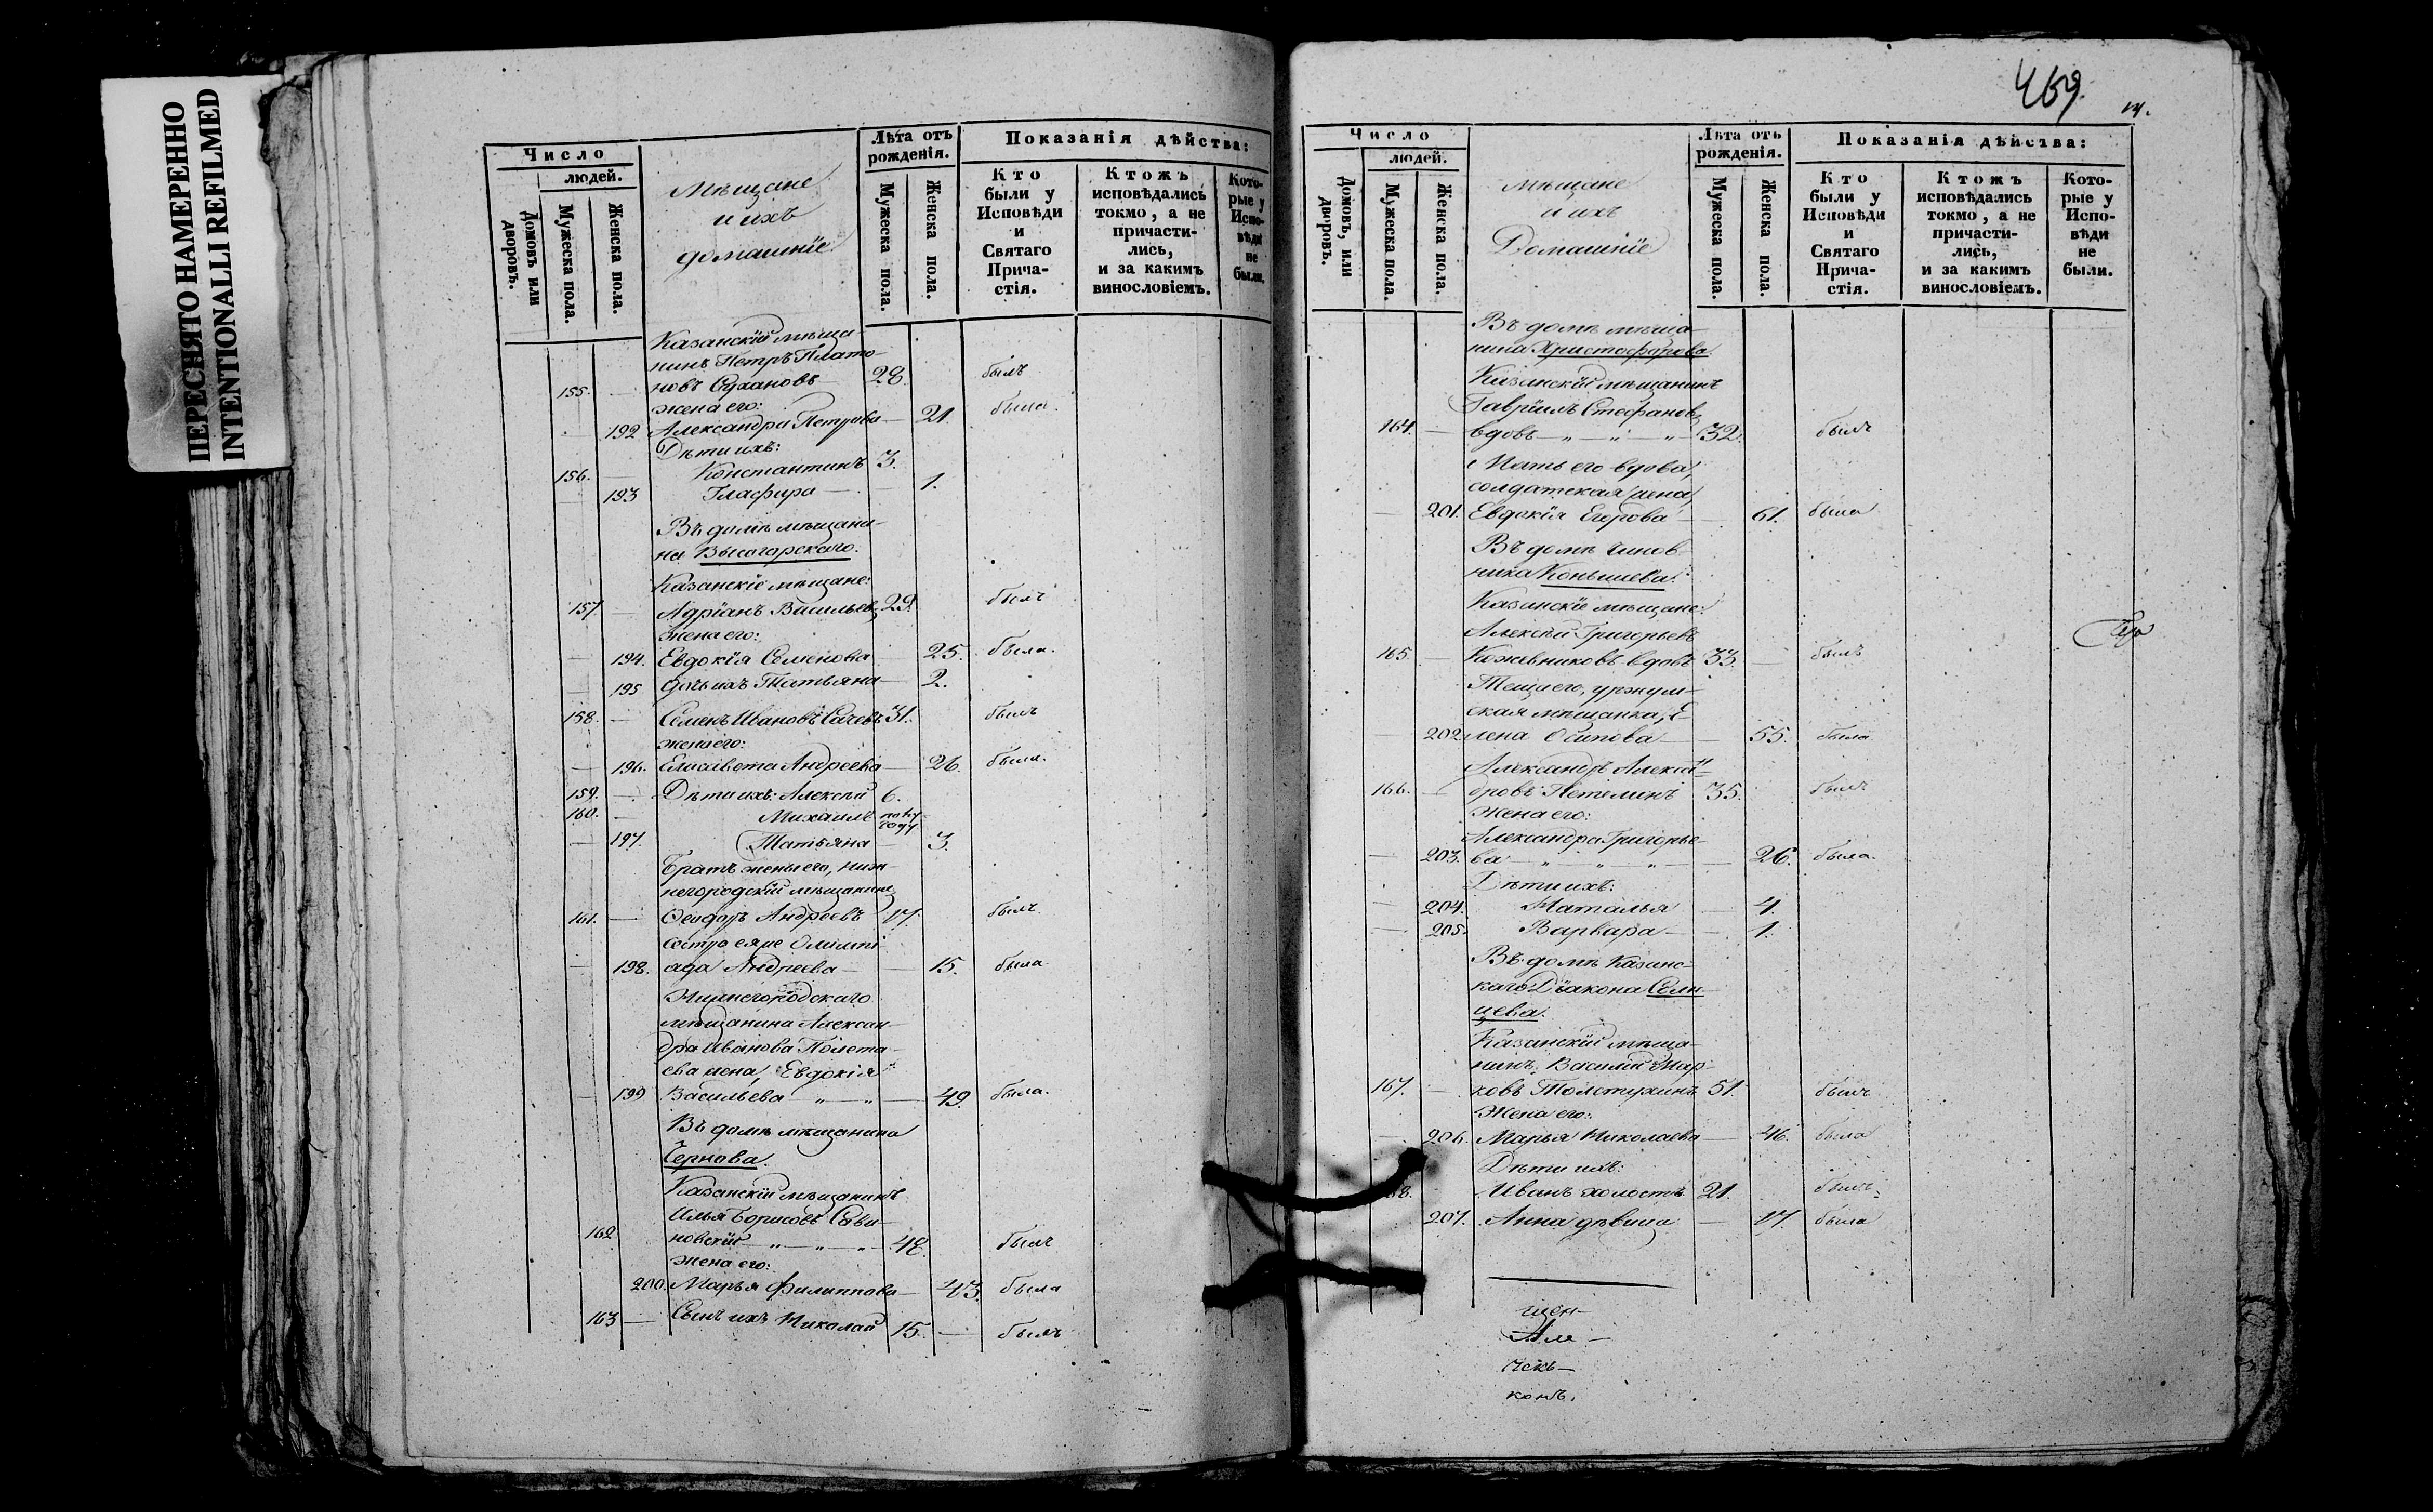 ПЕРЕСНЯТО НАМЕРЕННО
INTENTIONALLI REFILMED
Число
людей.
Домовъ или дворовъ.
Мужеска пола.
Женска пола.
Мѣщане
и ихъ
домашніе
Лѣта отъ рожденія.
Мужеска пола.
Женска пола.
Показанія дѣйства:
Кто были у Исповѣди и Святаго Прича-стія.
Ктожъ исповѣдались токмо, а не причасти-лись, и за какимъ винословіемъ.
Кото-рые у Испо-вѣди не были.
Казанскій мѣща-
нинъ Петръ Плато-
155. — новъ Сухановъ 28. былъ
жена его:
— 192 Александра Петрова — 21. была.
Дѣти ихъ:
156. — Константинъ 3.
— 193 Глафира — — 1.
Въ домѣ мѣщани-
на Высогорскаго.
Казанскіе мѣщане:
157. — Адріанъ Васильевъ 29. былъ
жена его:
— 194. Евдокія Семенова — 25. была.
— 195 дочь ихъ Татьяна — 2.
158. — Семенъ Ивановъ 31. былъ
жена его:
— 196. Елисавета Андреева — 26. была.
159. — Дѣти ихъ: Алексѣй 6.
160. — Михаилъ полу году
— 197. Татьяна — 3.
Братъ жены его, ниж-
негородскій мѣщанинъ
161. — Ѳеодоръ Андреевъ 17. былъ
сестра ея же Олимпі-
— 198. ада Андреева — — 15. была
Нижнегородскаго
мѣщанина Алексан-
дра Иванова Полета-
ева жена, Евдокія
— 199 Васильева — „ — „ — 49. была.
Въ домѣ мѣщанина
Чернова.
Казанскій мѣщанинъ
Илья Борисовъ Сави-
162. новскій — „ — „ — „ — 48. былъ
жена его:
200. Марья Филиппова — 43. была
163 — Сынъ ихъ Николай 15. — былъ
469.
Число
людей.
Домовъ, или дворовъ.
Мужеска пола.
Женска пола.
мѣщане
и ихъ
Домашніе
Лѣта отъ рожденія.
Мужеска пола.
Женска пола.
Показанія дѣйства:
Кто были у Исповѣди и Святаго Прича-стія.
Ктожъ исповѣдались токмо, а не причасти-лись, и за какимъ винословіемъ.
Кото-рые у Испо-вѣди не были.
Въ домѣ мѣща-
нина Христофорова.
Казанскій мѣщанинъ
Гавріилъ Стефановъ
164. — вдовъ — „ — „ — „ — 32. былъ
Мать его вдова,
солдатская жена,
— 201. Евдокія Егорова — — 61. была
Въ домѣ чинов-
ника Конышева.
Казанскіе мѣщане:
Алексѣй Григорьевъ
165. — Кожевниковъ вдовъ 33. — былъ
Теща его, уржум-
ская мѣщанка, Е-
— 202. лена Осипова — — 55. была
Александръ Алексан-
166. — дровъ 35. былъ
Жена его:
Александра Григорье-
— 203. ва — „ „ „ — — 26. была.
Дѣти ихъ:
— 204. Наталья — 4.
— 205. Варвара — — 1.
Въ домѣ Казанс-
каго Діакона Селн-
цева.
Казанскій мѣща-
нинъ, Василій Мар-
167. — ковъ Толстухинъ 51. былъ
Жена его:
— 206. Марья Николаева — 46. была
Дѣти ихъ:
Иванъ холостъ 21. былъ
207. Анна дѣвица — 17. была